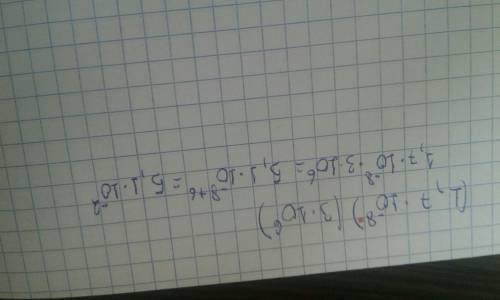 (1,7·10⁻⁸) (3·10⁶)
1,7·10⁻⁸·3·10⁶=5,1·10⁻⁸⁺⁶=5,1·10⁻²